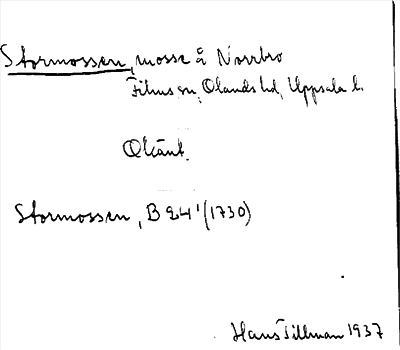 Stormossen, mosse å Norrbro
Films sn, Olands hd, Uppsala l.
Okänt.
Stormossen, B 24¹ (1730)
Hans Tillman 1937